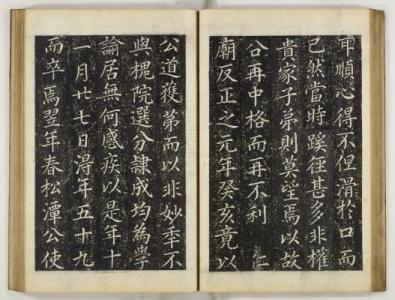 而順心得不但滑於口而
已然當時蹊徑甚多非權
貴家子弟則莫望焉以故
公再中格而再不利 仁
廟反正之元年癸亥竟以
公道獲第而以非妙年不
與槐院選分隸成均為學
諭居無何感疾以是年十
一月廿七日得年五十九
而卒焉翌年春松潭公使